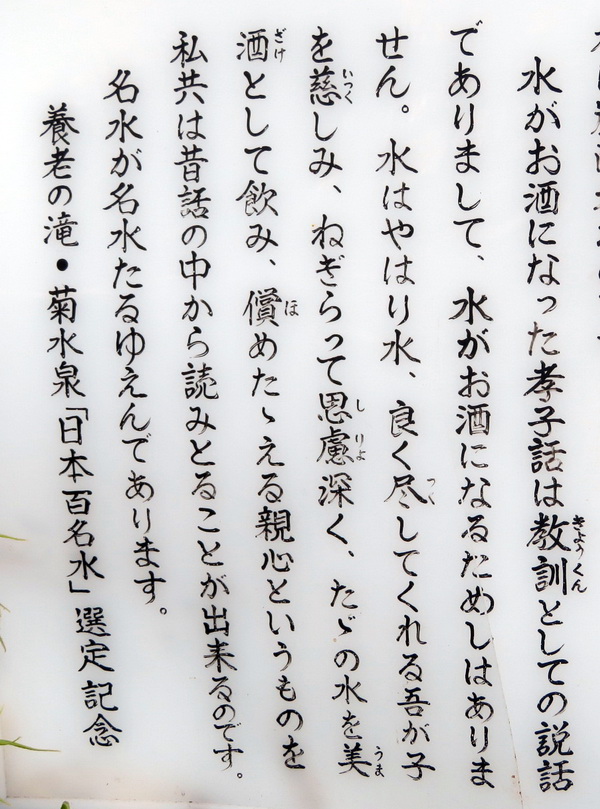 水がお酒になった孝子話は教訓としての説話
でありまして、水がお酒になるためしはありま
せん。水はやはり水、良く尽してくれる吾が子
を慈しみ、ねぎらって思慮深く、たゞの水を美
酒として飲み、償めたゝえる親心というものを
私共は昔話の中から読みとることが出来るのです。
名水が名水たるゆえんであります。
養老の滝・菊水泉「日本百名水」選定記念